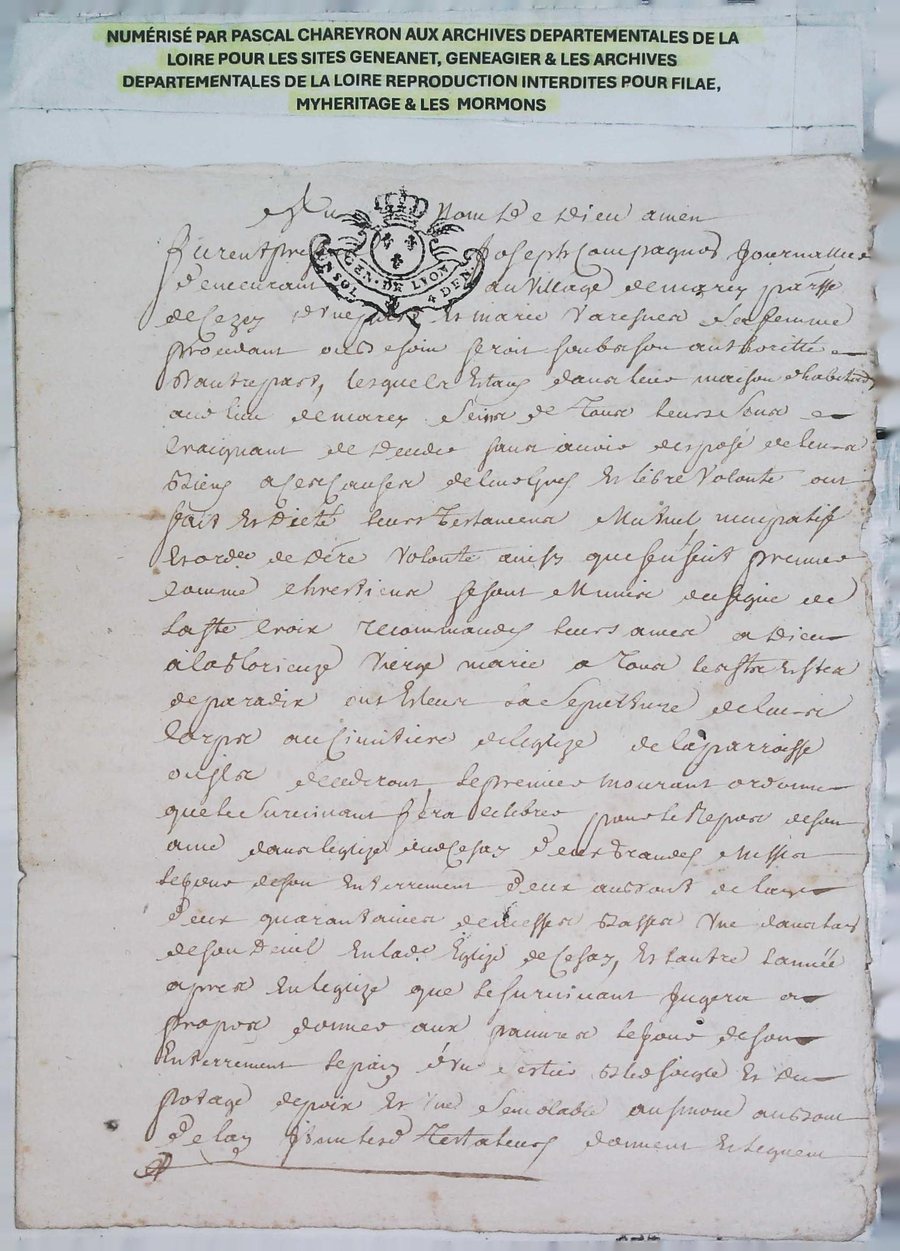 NUMÉRISÉ PAR PASCAL CHAREYRON AUX ARCHIVES DEPARTEMENTALES DE LA
LOIRE POUR LES SITES GENEANET, GENEAGIER & LES ARCHIVES
DEPARTEMENTALES DE LA LOIRE REPRODUCTION INTERDITES POUR FILAE,
MYHERITAGE & LES MORMONS
Au Nom de dieu amen
GEN. DE LYON
UN SOL 4 DEN.
furent Joseph Compagnon Journallier
demeurant au village de marey parsse
de Cezay d'une part Et marie sa femme
procedant ou besoin seroit soub son authoritté
d'autre part, lesquels Estans dans leur maison d'habitaon
aud lieu de marey seins de Tous leurs sens
Craignant de deceder sans avoir disposé de leurs
Biens a ces causes de leur gres Et libre volonté ont
fait Et dicté leurs Testament Mutuel nuncupatif
Et ordre de dere volonté ainsy que s'ensuit premier
Comme chrestiens se sont Munis du signe de
la ste Croix recommandés leurs ames a dieu
a la Glorieuze vierge marie a Tous les sts Et stes
de paradix ont Esleus la Sepulture de leurs
Corps au Cimitiere de leglize de la parroisse
ou ils decederont, le premier mourant ordonne
que le survivant fera celebrer pour le Repos de son
ame dans leglize dud Cesay deux Grandes Messes
le jour de son Enterrement deux au bout de lan
deux quarantaines de Messes Basses une dans lan
de son deuil En lade Eglize de Cesay, Et lautre lannée
apres En leglize que le survivant Jugera a
propos donner aux pauvres le jour de son
Enterrement le pain d'un sestier Bled seigle Et du
potage de poix Et une semblable aumone au bout
de lan lesd Testateurs donnent Et leguent